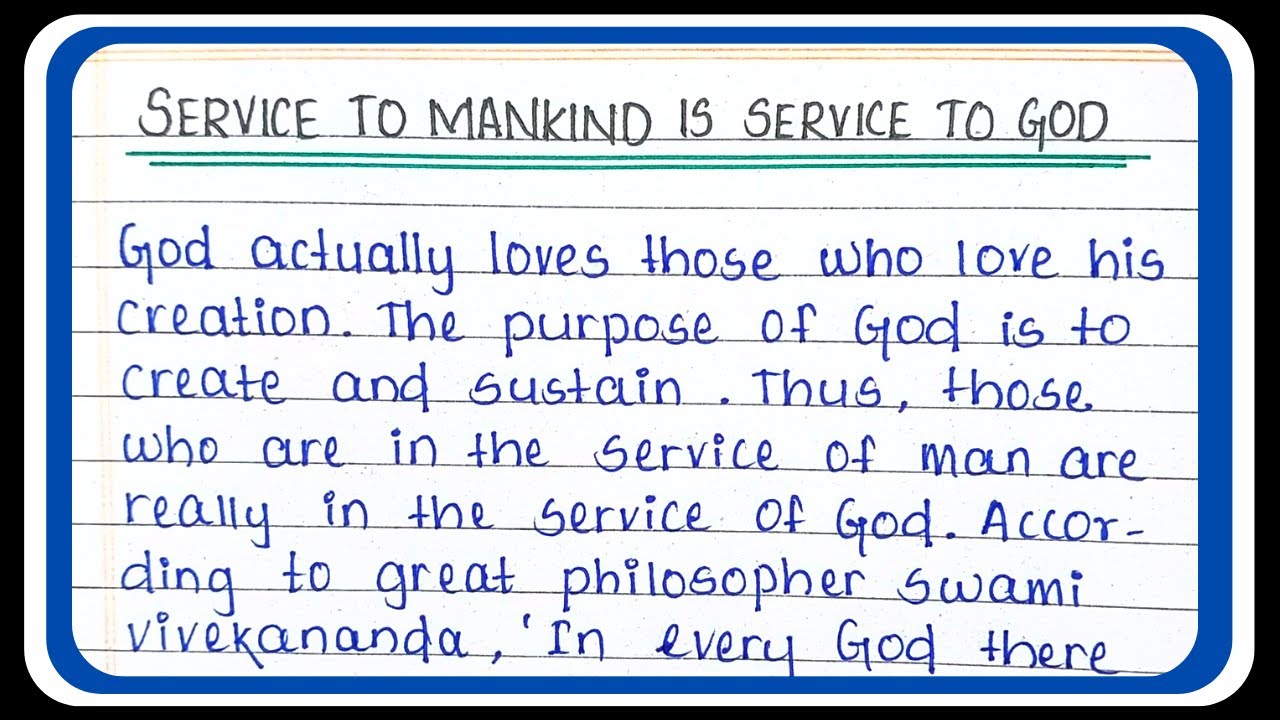 SERVICE TO MANKIND IS SERVICE TO GOD
God actually loves those who love his
creation. The purpose of God is to
create and sustain. Thus, those
who are in the service of man are
really in the service of God. Accor-
ding to great philosopher swami
vivekananda, 'In every God there